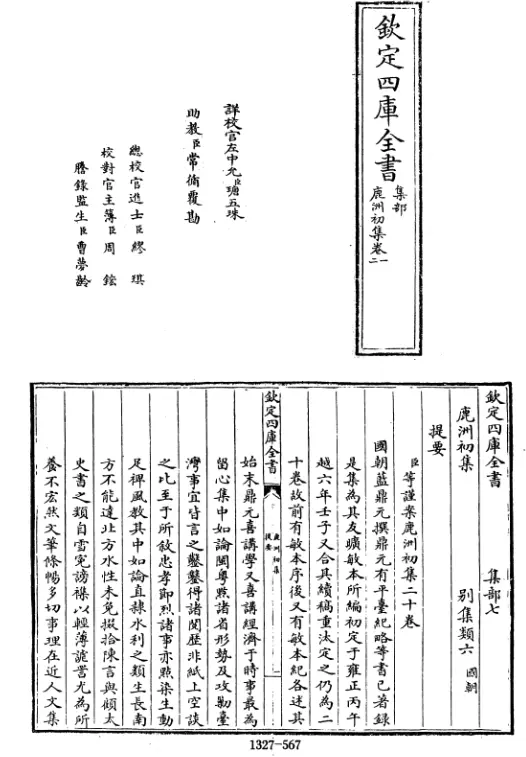 欽定四庫全書
集部
鹿洲初集卷一
二
詳校官左中允臣瑭五珠
助教臣常循覆勘
總校官進士臣繆琪
校對官主簿臣周鋐
謄錄監生臣曹夢齡
欽定四庫全書 集部七
鹿洲初集 別集類六 國朝
提要
臣等謹案鹿洲初集二十卷
國朝藍鼎元撰鼎元有平臺紀略等書已著錄
是集為其友曠敏本所編初定于雍正丙午
越六年壬子又合其續稿重汰定之仍為二
十卷故前有敏本序後又有敏本紀各述其
欽定四庫全書 鹿洲初集 提要 一
始末鼎元喜講學又喜講經濟于時事最為
留心集中如論閩粵黔諸省形勢及攻勦臺
灣事宜皆言之鑿鑿得諸閱歷非紙上空談
之比至于所敘忠孝節烈諸事亦點染生動
足裨風教其中如論直隸水利之類生長南
方不能達北方水性未免掇拾陳言與傾太
史書之類自雪冤謗褊以輕薄詭詈尤為所
養不宏然文筆條暢多切事理在近人文集
1327-567